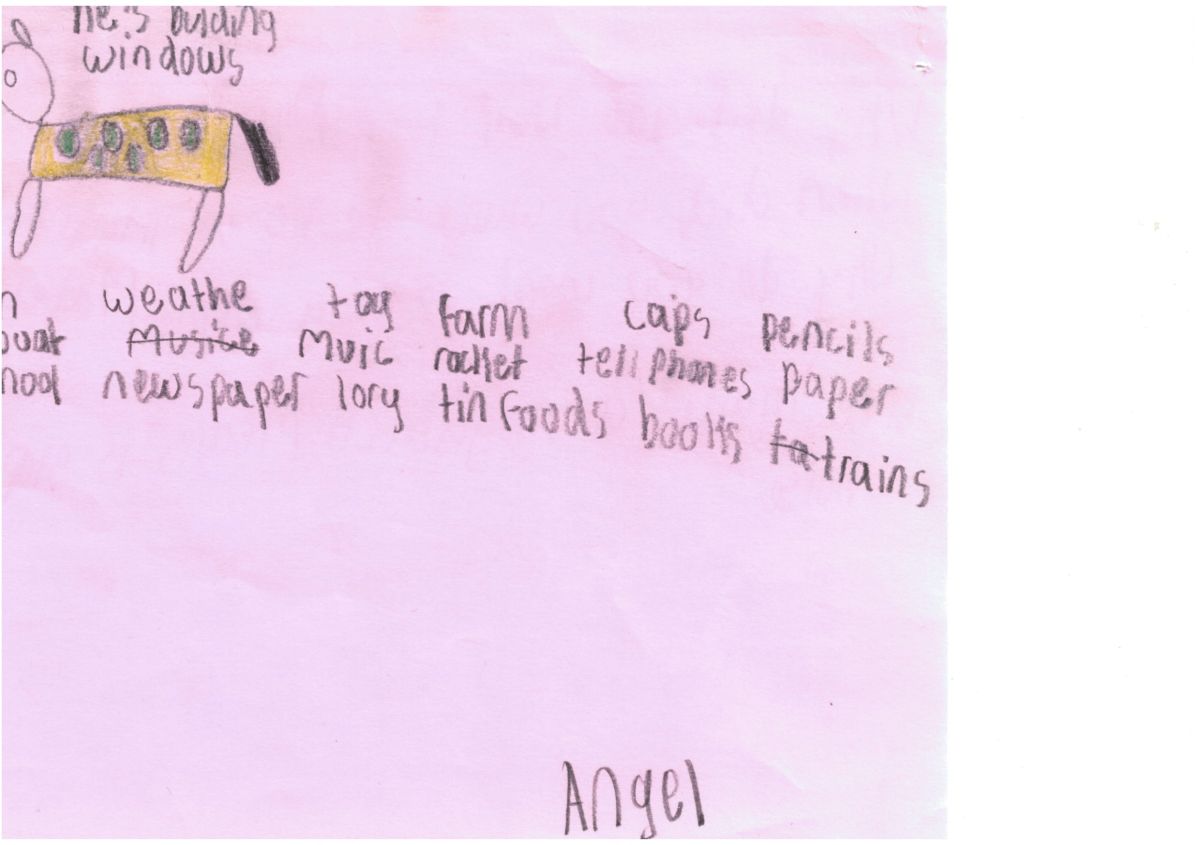 he's building
windows
weathe toy farm caps pencils
boat Musice Muic rocket tellphones paper
newspaper lory tin foods books ta trains
Angel